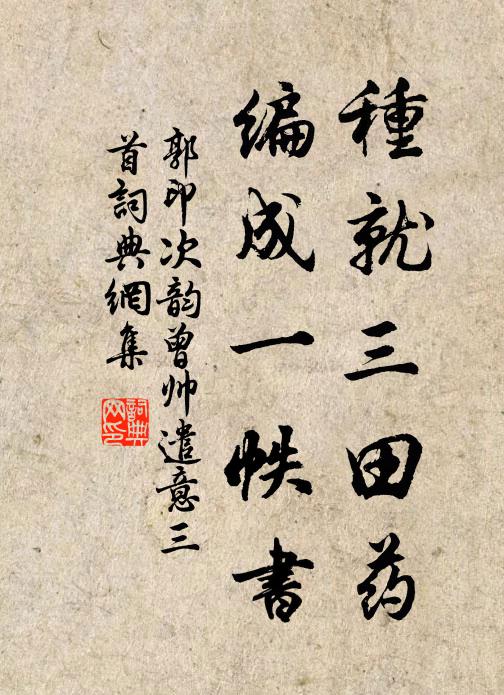 種就三田药
编成一帙書
郭印次韵曾帅遣意三
首詞典網集
詞典网印